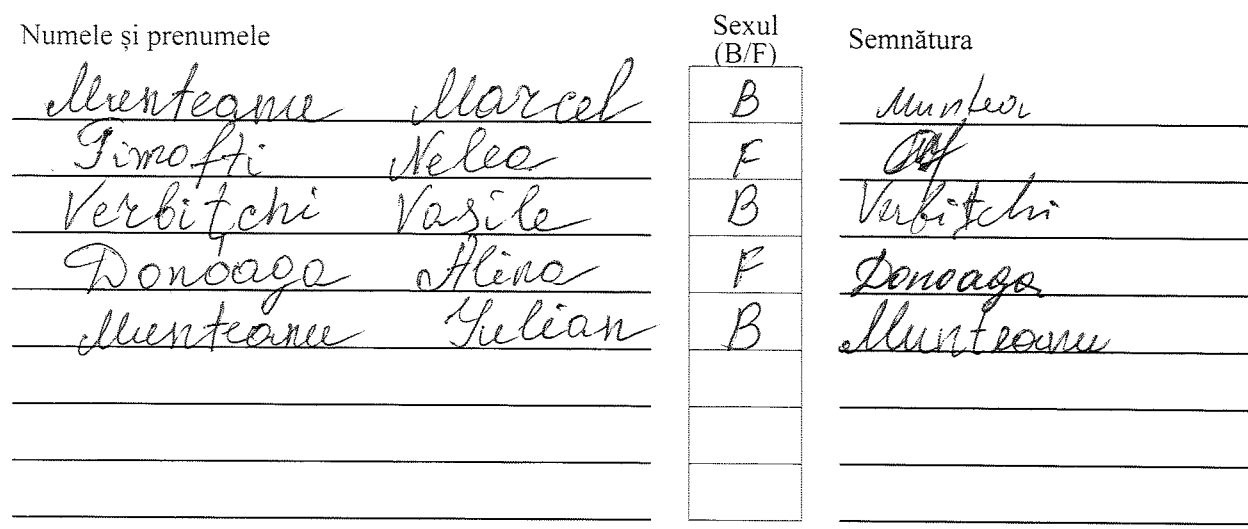 Numele și prenumele Sexul (B/F) Semnătura
Munteanu Marcel B Muntea
Timofti Nelea F
Verbițchi Vasile B Verbițchi
Donoaga Alina F Donoaga
Munteanu Iulian B Munteanu